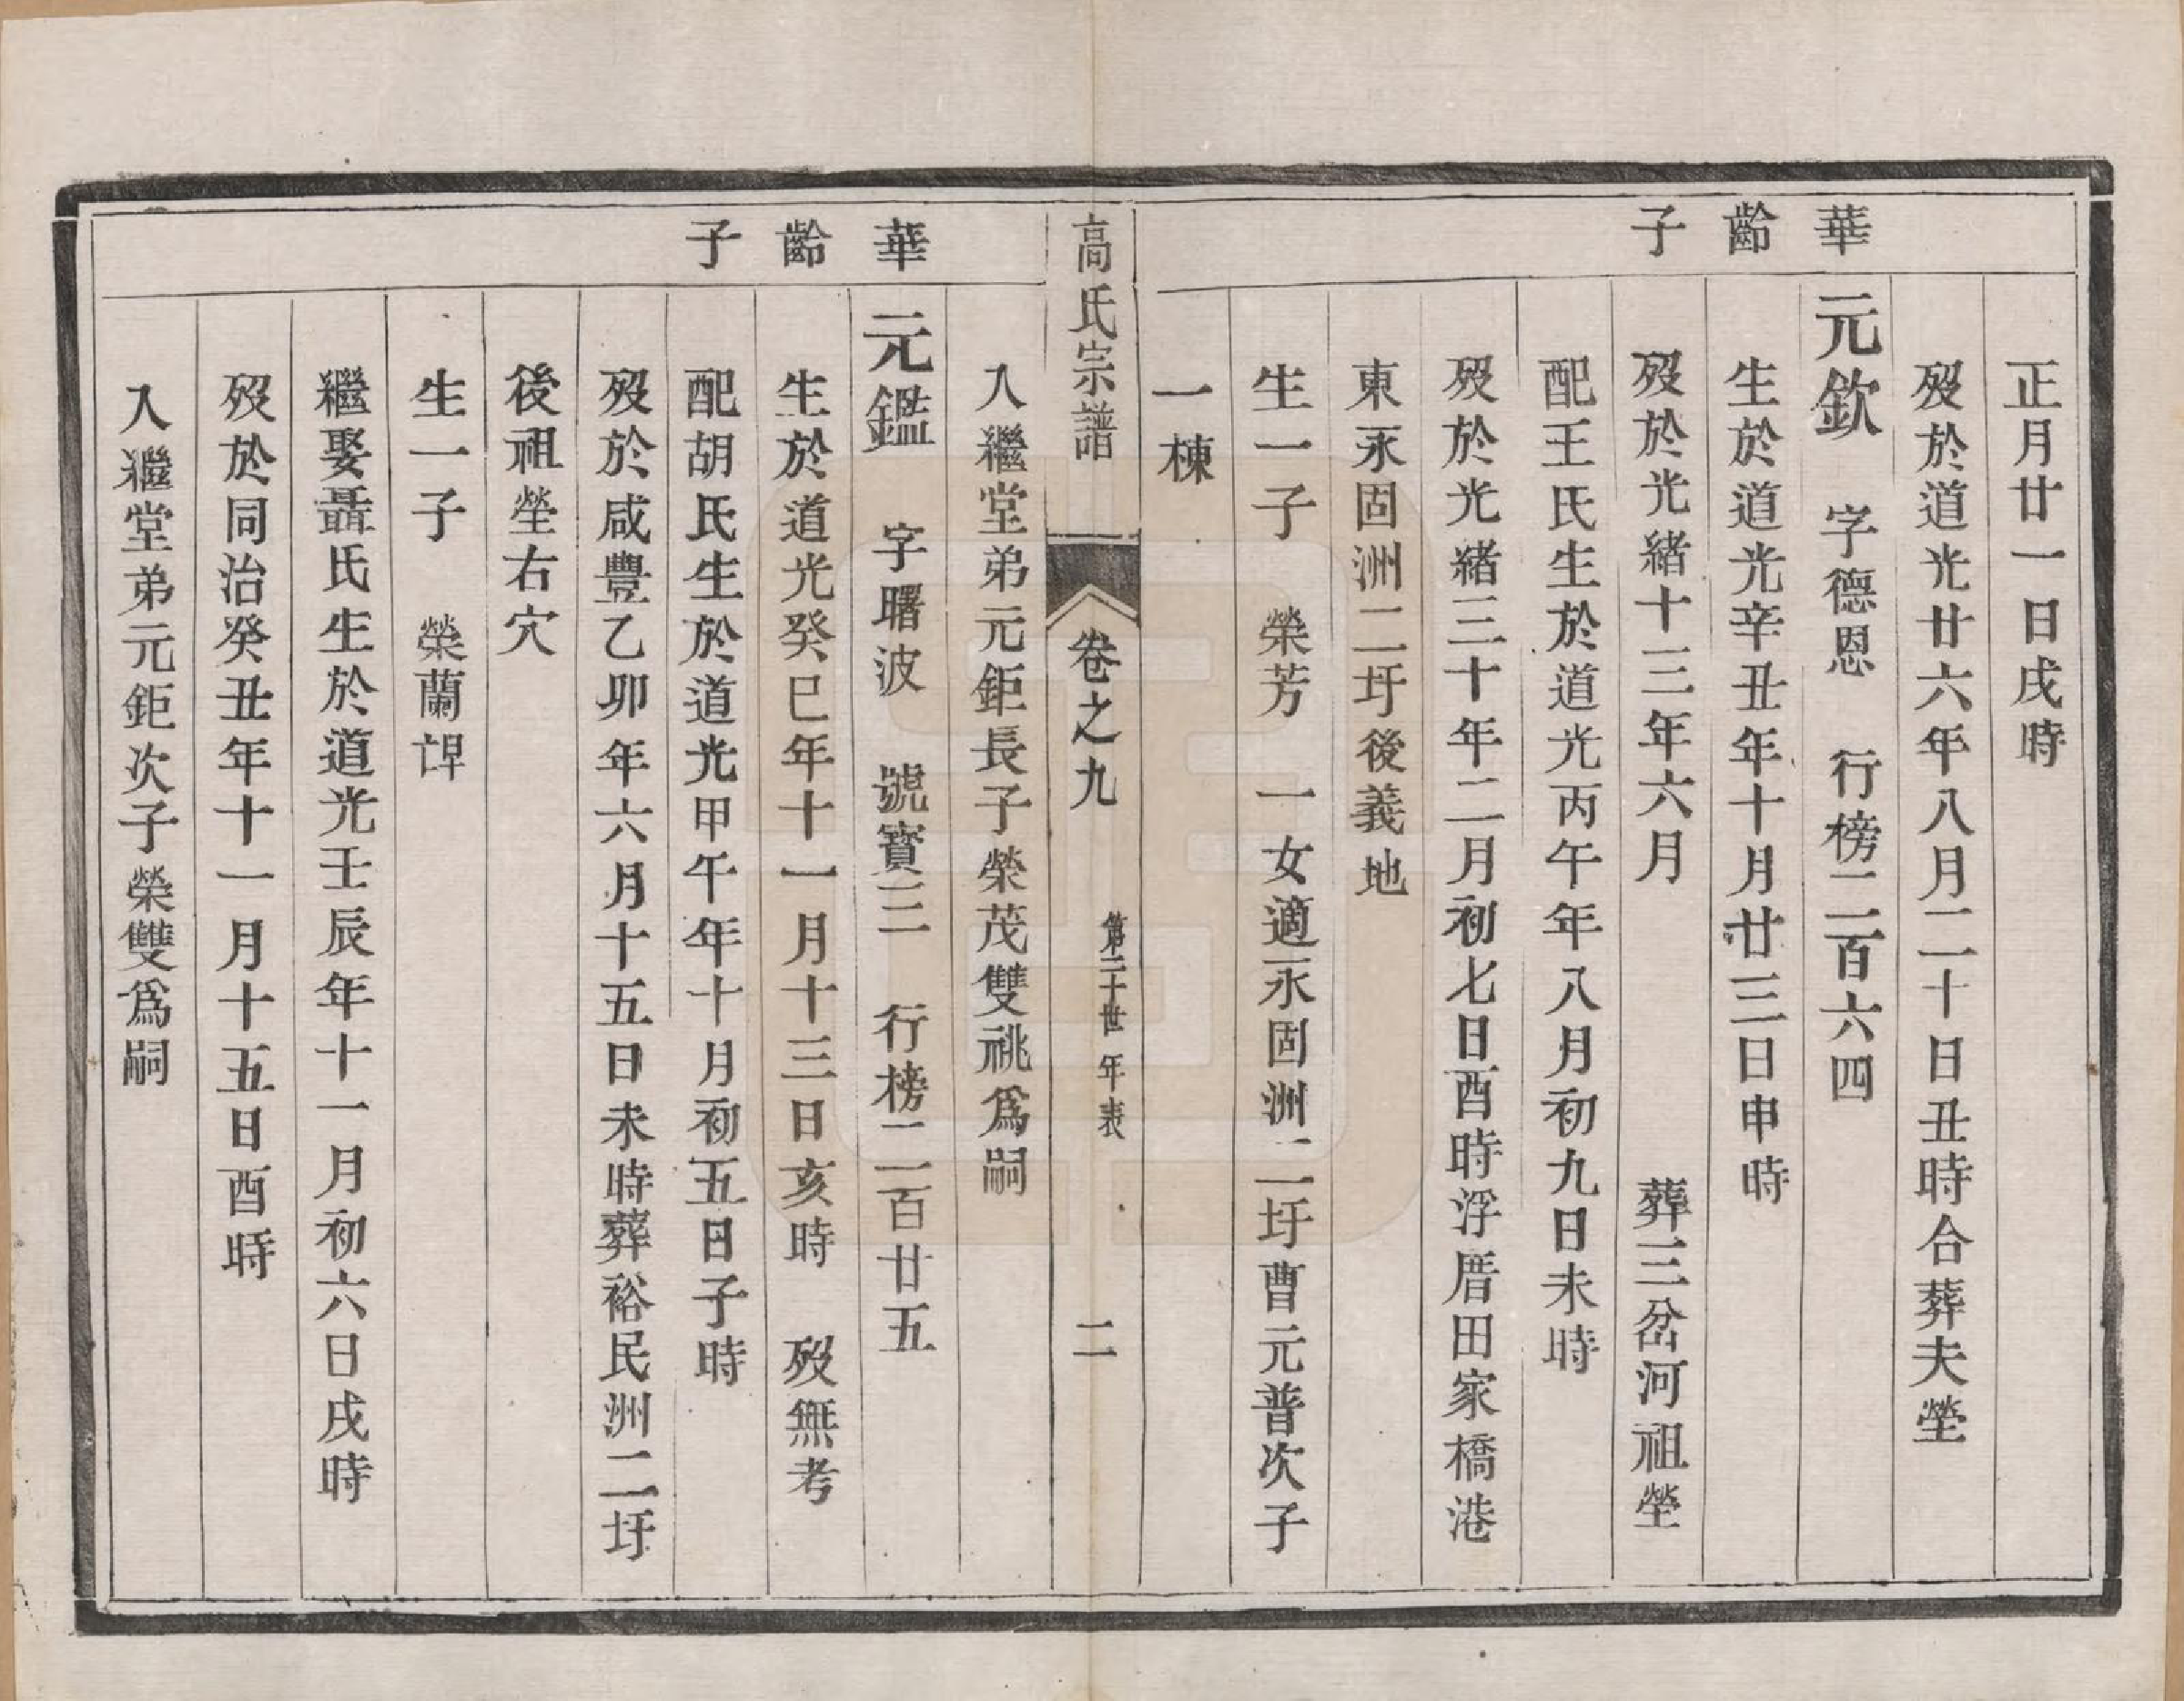 正月廿一日戌時
歿於道光廿六年八月二十日丑時合葬夫塋
華齡子
元欽 字德恩 行榜二百六四
生於道光辛丑年十月廿三日申時
歿於光緒十三年六月 葬三岔河祖塋
配王氏生於道光丙午年八月初九日未時
歿於光緒三十年二月初七日酉時浮厝田家橋港
東永固洲二圩後義地
生一子 榮芳 一女適永固洲二圩曹元普次子
一棟
高氏宗譜 卷之九 第二十世年表 二
入繼堂弟元鉅長子榮茂雙祧爲嗣
華齡子
元鑑 字曙波 號寶三 行榜二百廿五
生於道光癸巳年十一月十三日亥時 歿無考
配胡氏生於道光甲午年十月初五日子時
歿於咸豐乙卯年六月十五日未時葬裕民洲二圩
後祖塋右穴
生一子 榮蘭
繼娶聶氏生於道光壬辰年十一月初六日戌時
歿於同治癸丑年十一月十五日酉時
入繼堂弟元鉅次子榮雙爲嗣